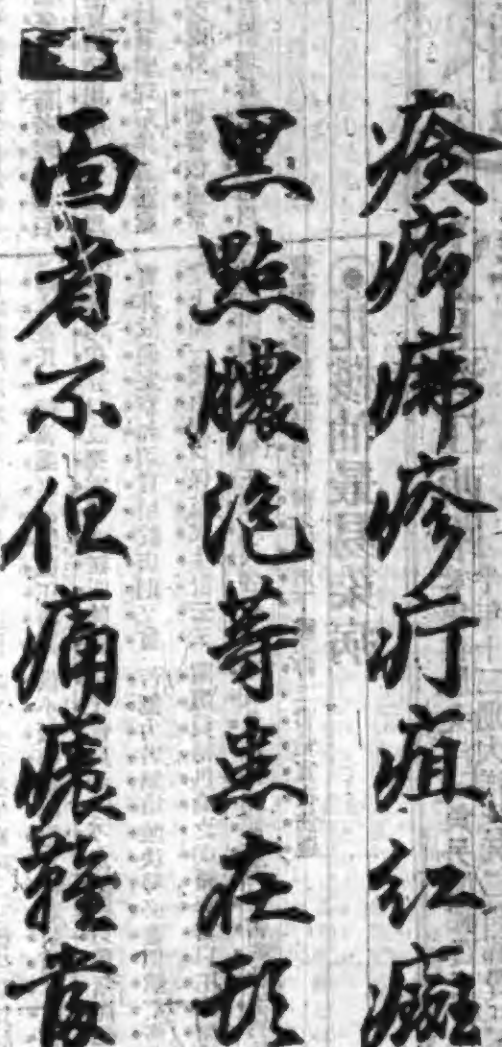 瘡癤疿疹疔疽紅癍
黑點膿泡等患在頭
面者不但痛癢難當